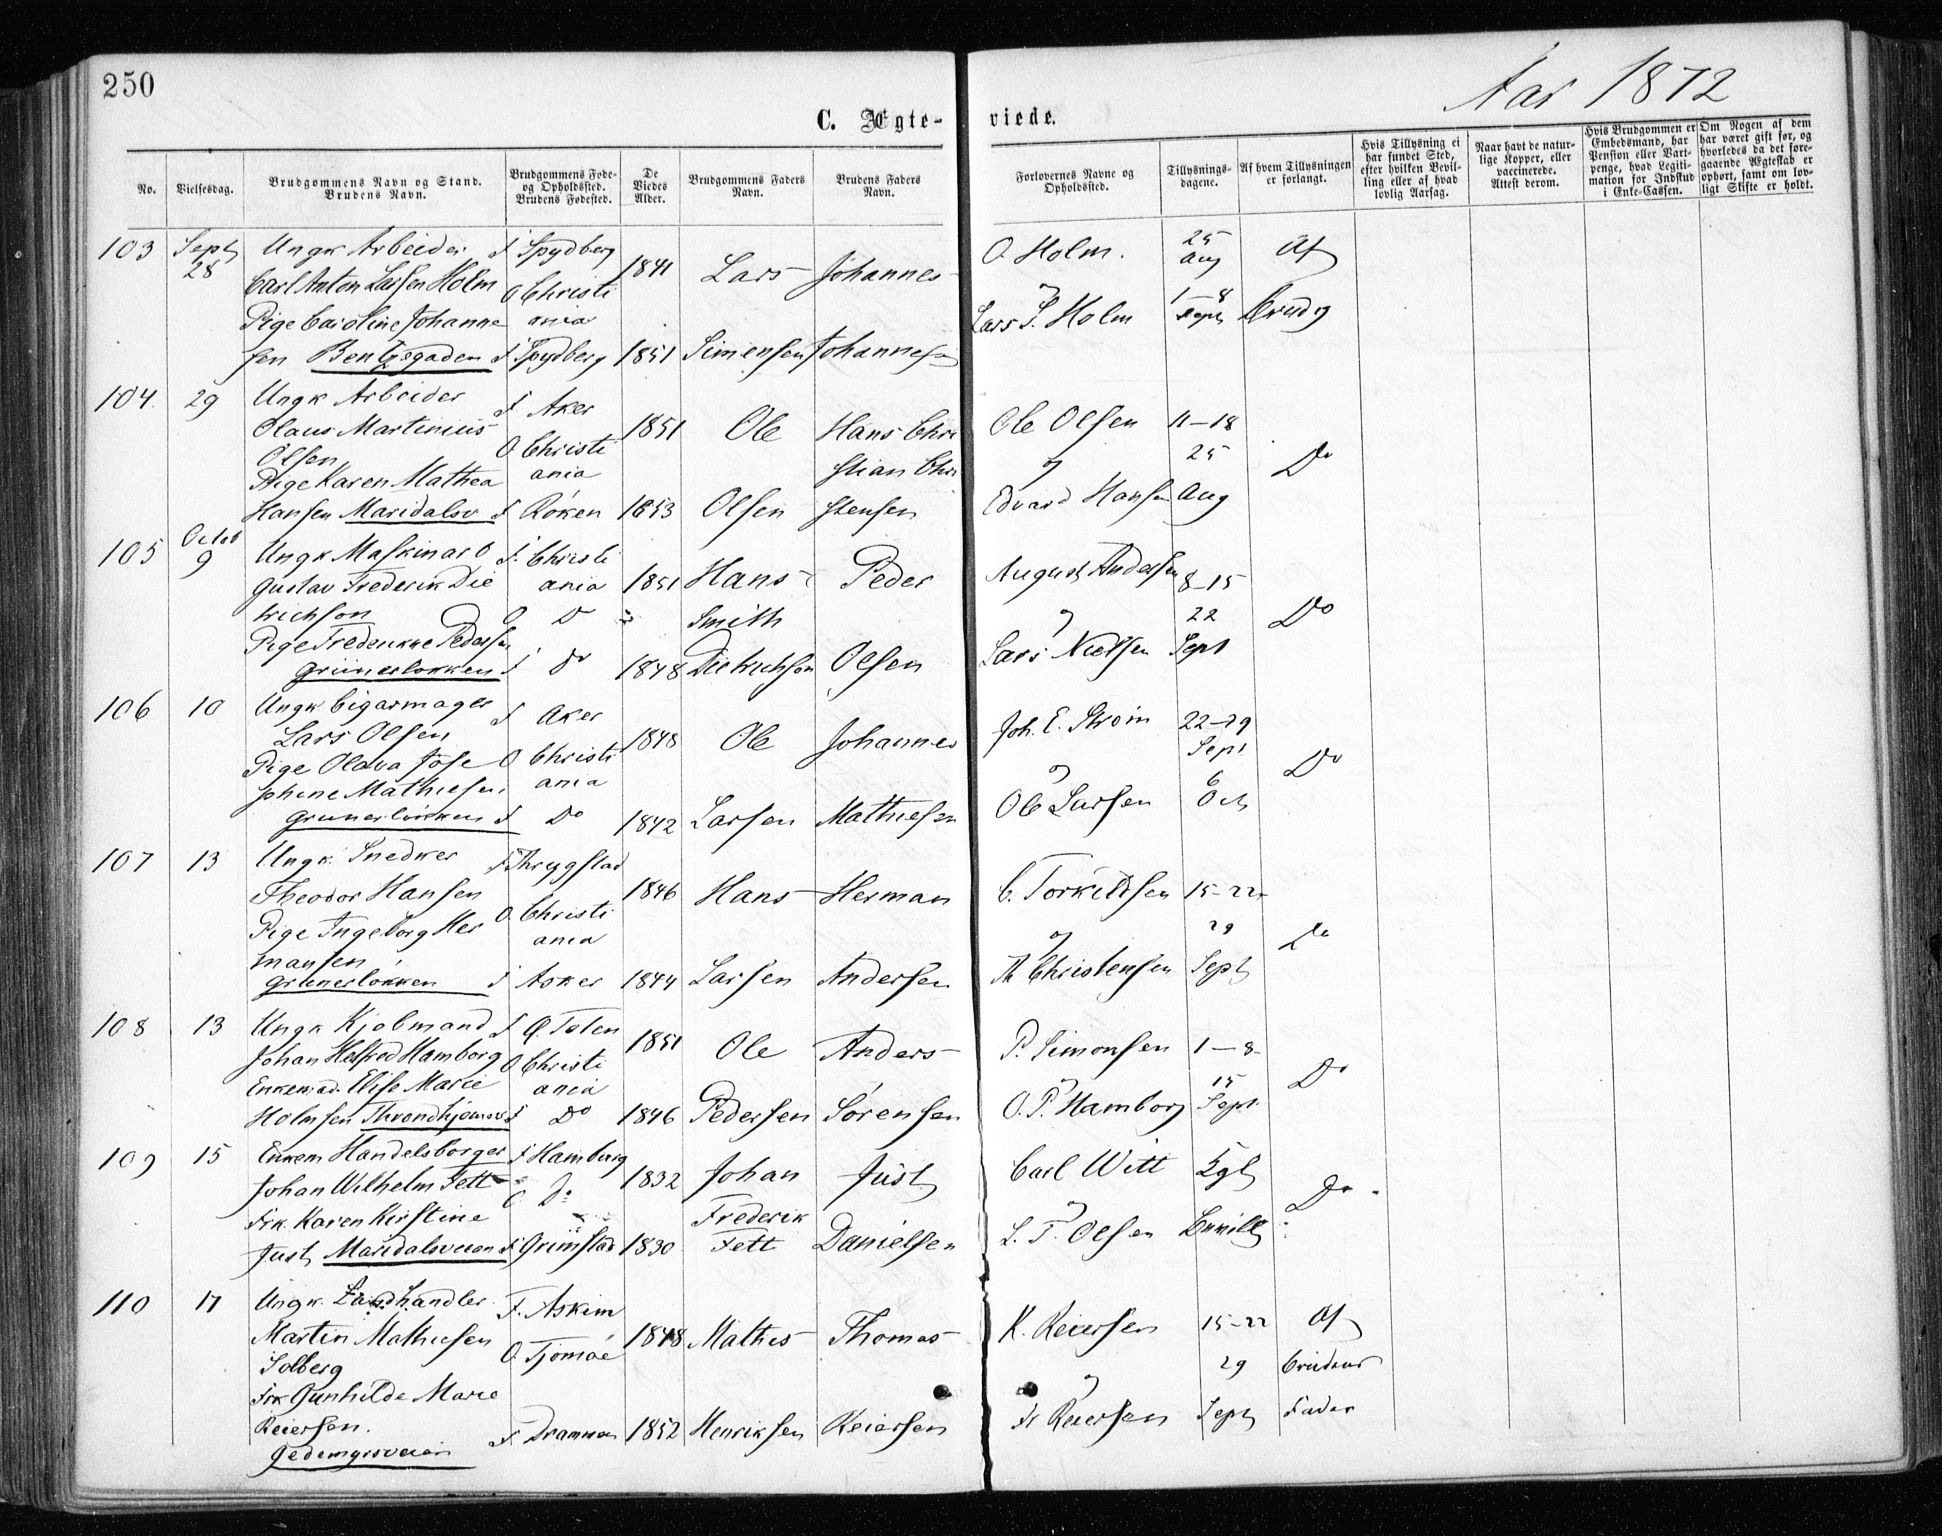 250
Aar 1872
C. Ægte- viede.
No.
Vielsesdag.
Brudgommens Navn og Stand.
Brudens Navn.
Brudgommens Føde-
og Opholdssted.
Brudens Fødested.
De
Viedes
Alder.
Brudgommens Faders
Navn.
Brudens Faders
Navn.
Forlovernes Navne og
Opholdssted.
Tillysnings-
dagene.
Af hvem Tillysningen
er forlangt.
Hvis Tillysning ei
har fundet Sted,
efter hvilken Bevil-
ling eller af hvad
lovlig Aarsag.
Naar havt de natur-
lige Kopper, eller
vaccinerede.
Attest derom.
Hvis Brudgommen er
Embedsmand, har
Pension eller Vart-
penge, hvad Legiti-
mation for Indskud
i Enke-Cassen.
Om Nogen af dem
har været gift før, og
hvorledes da det fore-
gaaende Ægteskab er
ophørt, samt om lov-
ligt Skifte er holdt.
103 Sept 28
Ungk Arbeider
Carl Anton Larsen Holm
Pige Caroline Johanne
sen Bentzegaden
F Spydberg
O Christi
ania
F Spydberg
1841
1851
Lars
Simensen
Johannes
Johannesen
O. Holm.
og
Lars S. Holm
25
Aug
1–8
Sept
Af
Brudg
104. 29
Ungk Arbeider
Olaus Martinius
Olsen
Pige Karen Mathea
Hansen Maridalsv
F Aker
O Christi
ania
F Røken
1851
1853
Ole
Olsen
Hans Chri
stian Chri
stensen
Ole Olsen
og
Edvard Hansen
11–18
25
Aug
Do
105 Octob 9
Ungk Maskinarb
Gustav Frederik Die
trichson
Pige Frederikke Pedersen
Grünerløkken
F. Christi
ania
O Do
F Do
1851
1848
Hans
Smith
Dietrichson
Peder
Olsen
August Andersen
og
Lars Nielsen
8–15
22
Sept
Do
106 10
Ungk Cigarmager
Lars Olsen
Pige Olava Jose
phine Mathiesen
Grünerløkken
F Aker
O Christi
ania
F Do
1848
1842
Ole
Larsen
Johannes
Mathiesen
Joh. E. Strøm
og
Ole Larsen
22–29
Sept
6
Oct
Do
107 13
Ungk. Snedker
Theodor Hansen
Pige Ingeborg Her
mansen
Grünerløkken
F Thrygstad
O. Christi
ania
F Asker
1846
1844
Hans
Larsen
Herman
Andersen
C. Torkildsen
og
Th Christensen
15–22
29
Sept
Do
108 13
Ungk Kjøbmand
Johan Helfred Hamborg
Enkemad. Elise Marie
Holmsen Throndhjemsv
F Ø. Toten
O Christi
ania
F Do
1851
1846
Ole
Pedersen
Anders
Sørensen
P. Simonsen
og
O. P. Hamborg
1–8
15
Sept.
Do
109 15
Enkem Handelsborger
Johan Wilhelm Fett
Frk. Karen Kirstine
Just Maridalsveien
F Hamburg
O Do
F Grimstad
1832
1830
Johan
Frederik
Fett
Just
Danielsen
Carl Witt
og
L. T. Olsen
Kgl
Bevill
Do
110 17
Ungk. Landhandler
Martin Mathiesen
Solberg
Frk Gunhilde Marie
Reiersen.
Gedemyrsveien
F. Askim
O. Tjømøe
F Drammen
1848
1852
Mathis
Henriksen
Thomas
Reiersen
K. Reiersen
og
Fr Reiersen
15–22
29
Sept
Af
Brudens
Fader